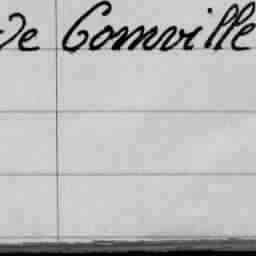 de Comville